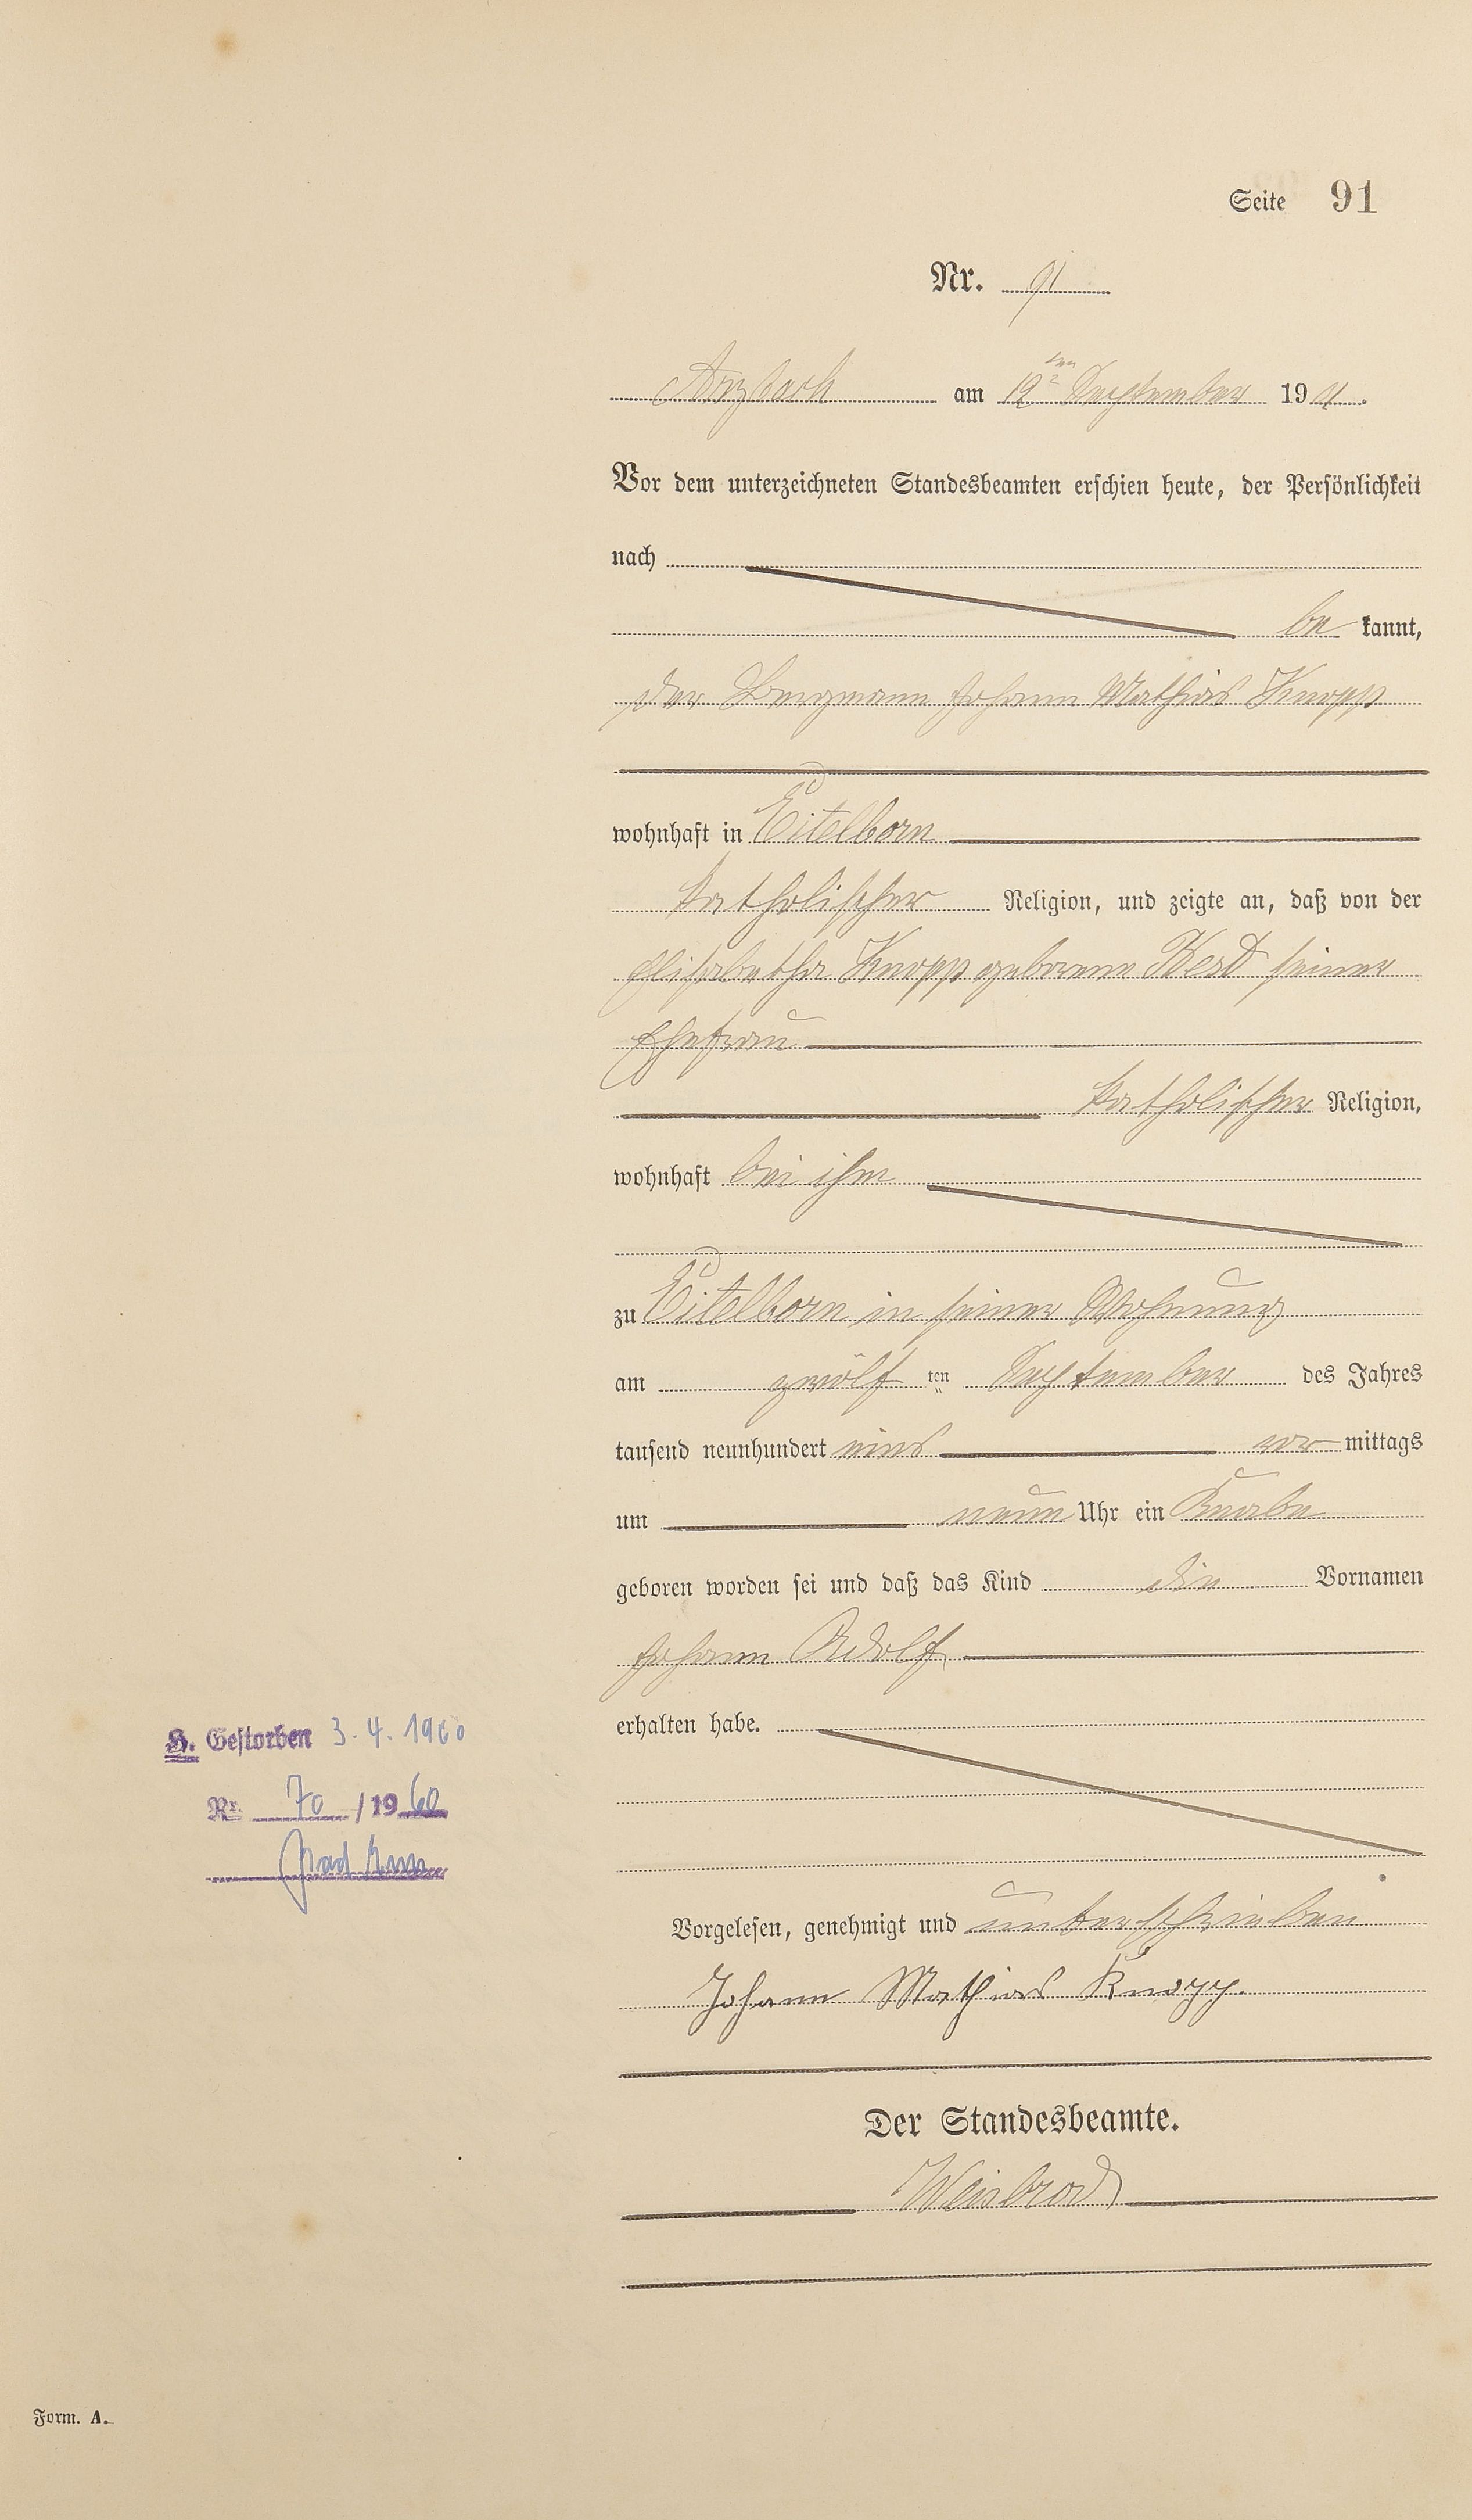 Seite 91
Nr. 91
Arzbach am 12ten September 1901.
Vor dem unterzeichneten Standesbeamten erschien heute, der Persönlichkeit
nach
be kannt,
der Bergmann Johann Mathias Knopp
wohnhaft in Eitelborn
katholischer Religion, und zeigte an, daß von der
Elisabetha Knopp geborene seiner
Ehefrau
katholischer Religion,
wohnhaft bei ihm
zu Eitelborn in seiner Wohnung
am zwölf ten September des Jahres
tausend neunhundert eins vor mittags
um neun Uhr ein Knabe
geboren worden sei und daß das Kind die Vornamen
Johann Adolf
erhalten habe.
H. Gestorben 3.4.1960
Nr. 70 / 1960
Bad Ems
Vorgelesen, genehmigt und unterschrieben
Johann Mathias Knopp.
Der Standesbeamte.
Weisbrod
Form. A.